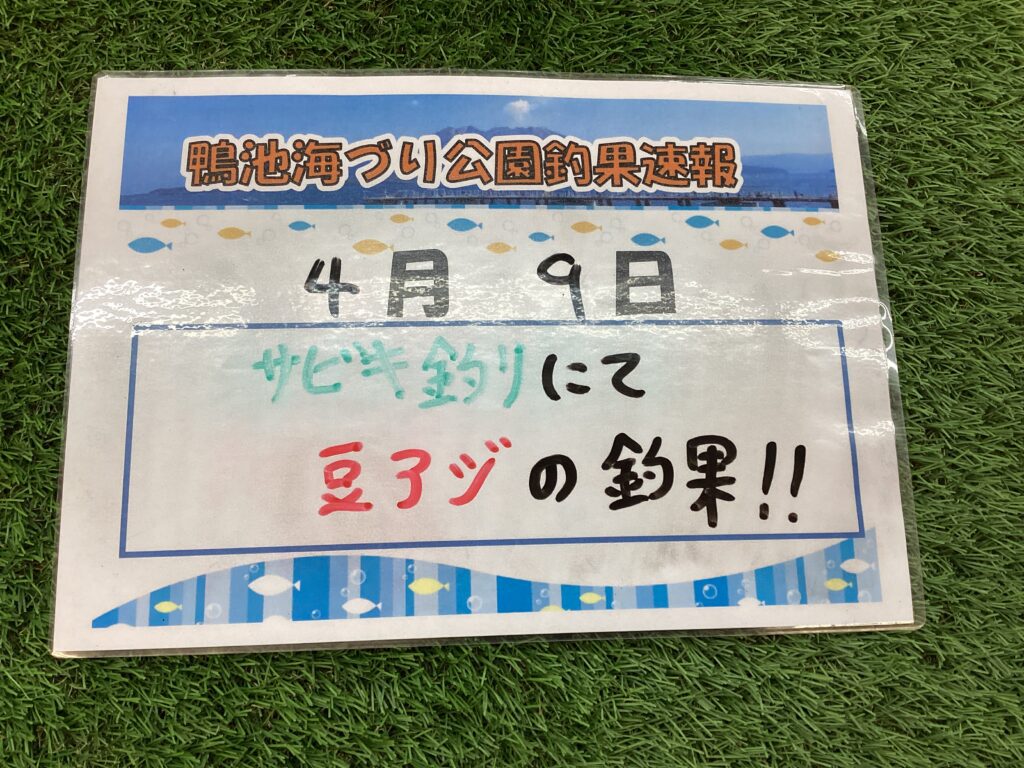 鴨池海づり公園釣果速報
4月 9日
サビキ釣りにて
豆アジの釣果!!